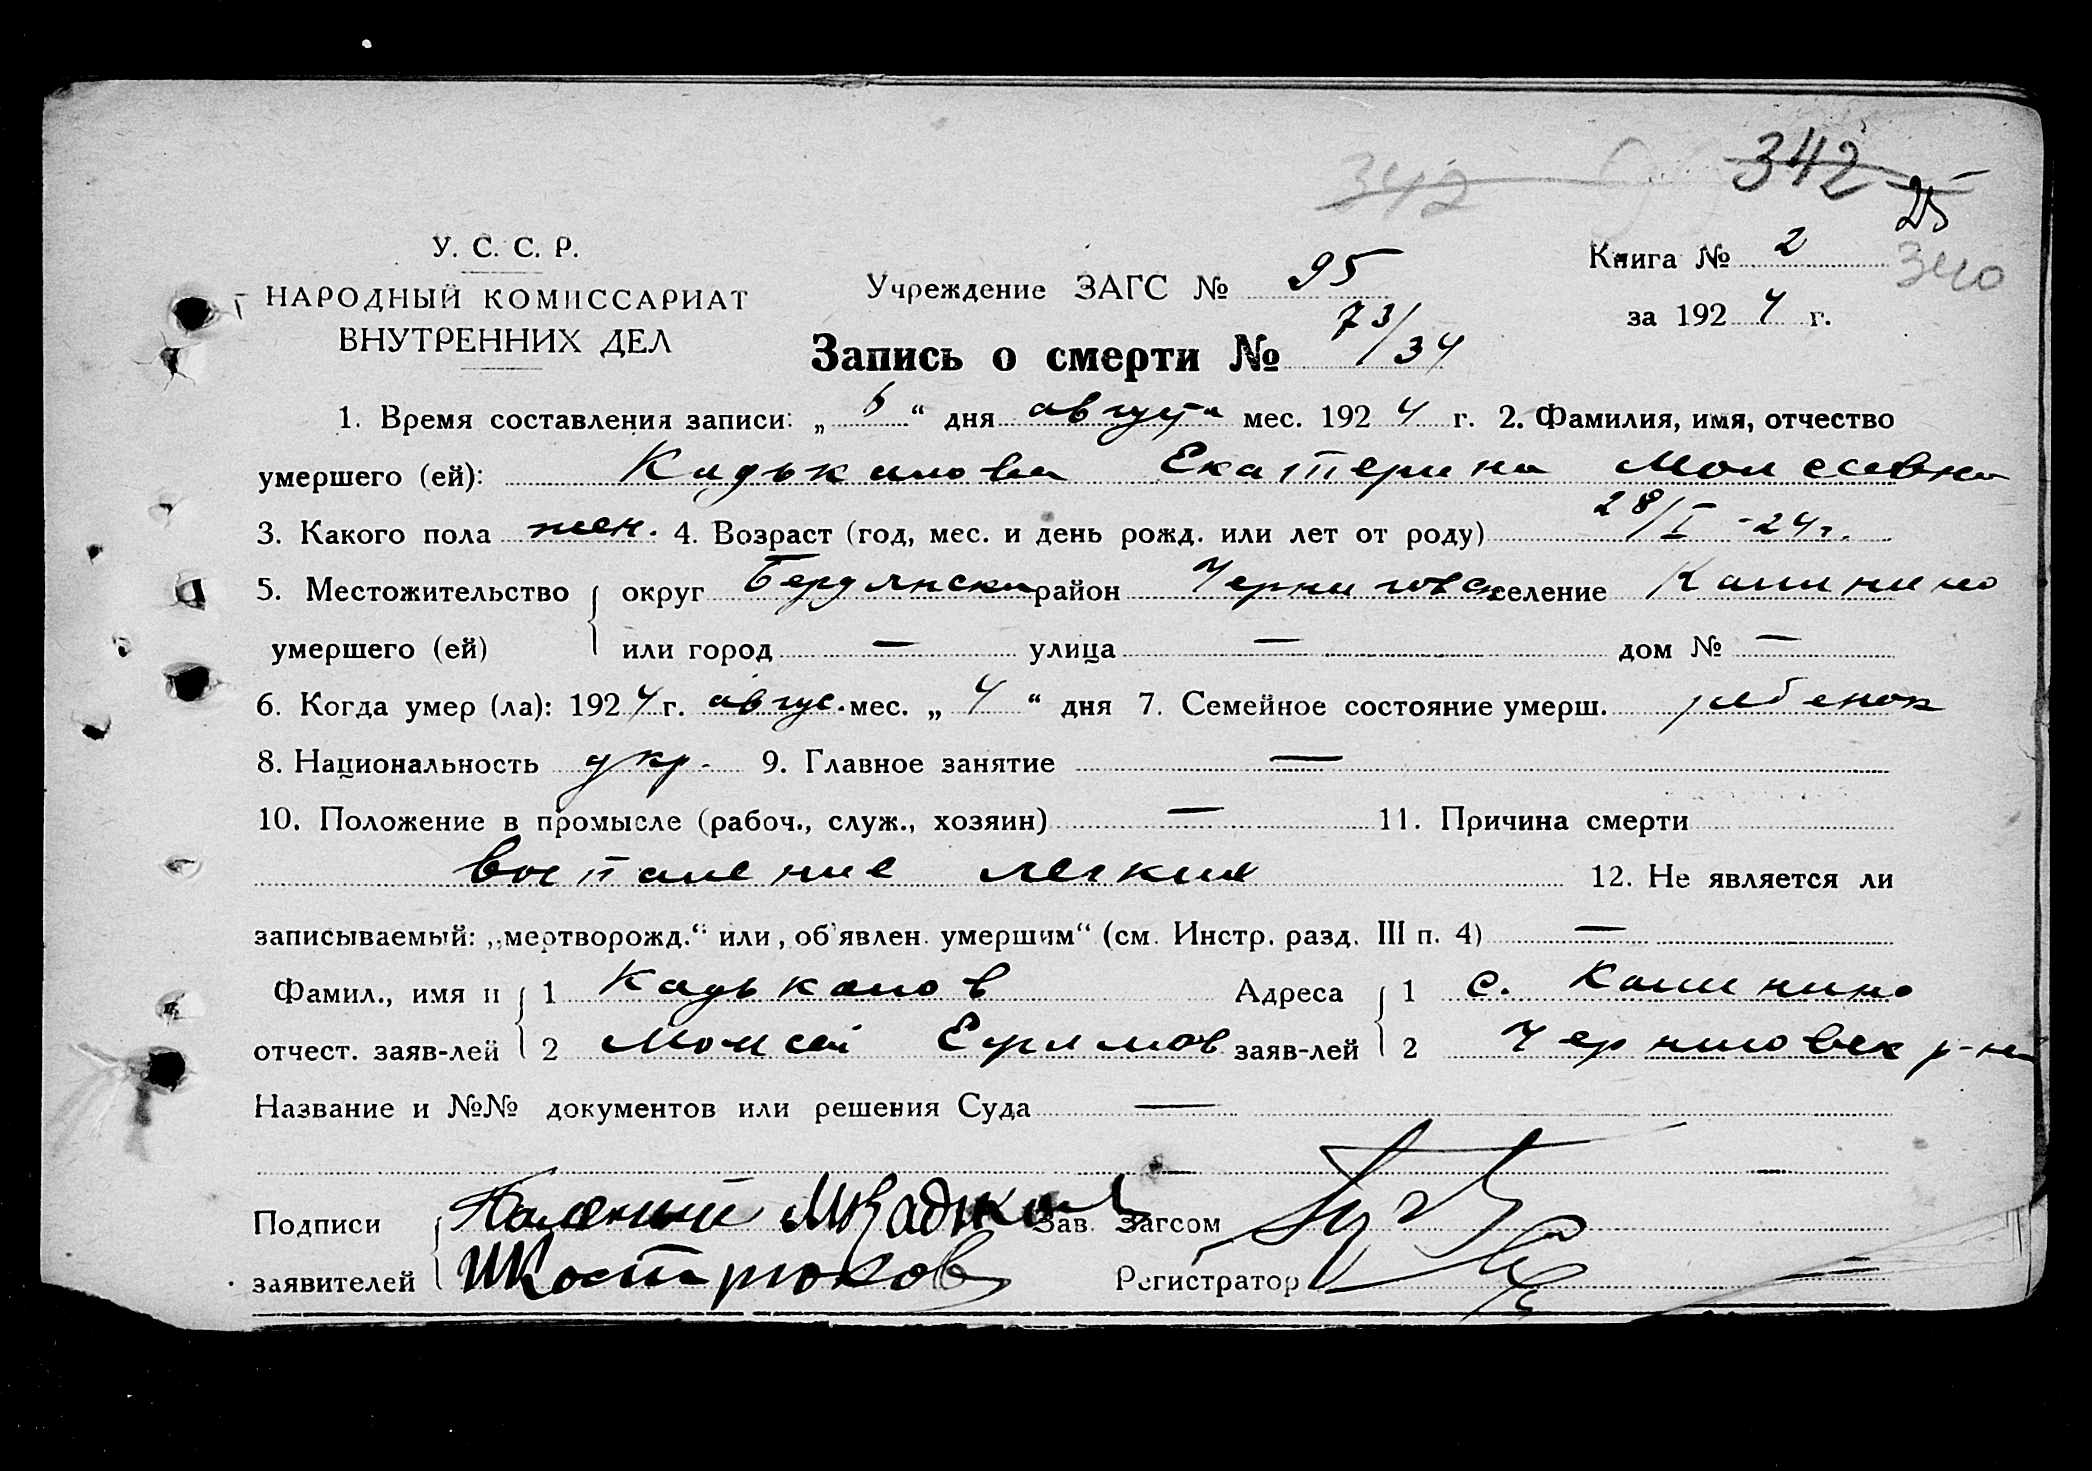 342 342
25
У. С. С. Р. Книга № 2 340
НАРОДНЫЙ КОМИССАРИАТ Учреждение ЗАГС № 95 за 1924 г.
ВНУТРЕННИХ ДЕЛ Запись о смерти № 73/34
1. Время составления записи: „6“ дня августа мес. 1924 г. 2. Фамилия, имя, отчество
умершего (ей): Кадькалова Екатерина Моисеевна
3. Какого пола жен. 4. Возраст (год, мес. и день рожд. или лет от роду) 28/I -24 г.
5. Местожительство округ Бердянски район Черниговск селение Калинино
умершего (ей) или город — улица — дом № —
6. Когда умер (ла): 1924 г. авгус. мес. „4“ дня 7. Семейное состояние умерш. ребенок
8. Национальность укр. 9. Главное занятие —
10. Положение в промысле (рабоч., служ., хозяин) — 11. Причина смерти
воспаление легких 12. Не является ли
записываемый: „мертворожд.“ или „об'явлен. умершим“ (см. Инстр. разд. III п. 4) —
Фамил., имя и 1 Кадькалов Адреса 1 с. Калинино
отчест. заяв-лей 2 Моисей Ефимов заяв-лей 2 Черниговск р-на
Название и №№ документов или решения Суда —
Подписи Зав. Загсом
заявителей Костюков Регистратор